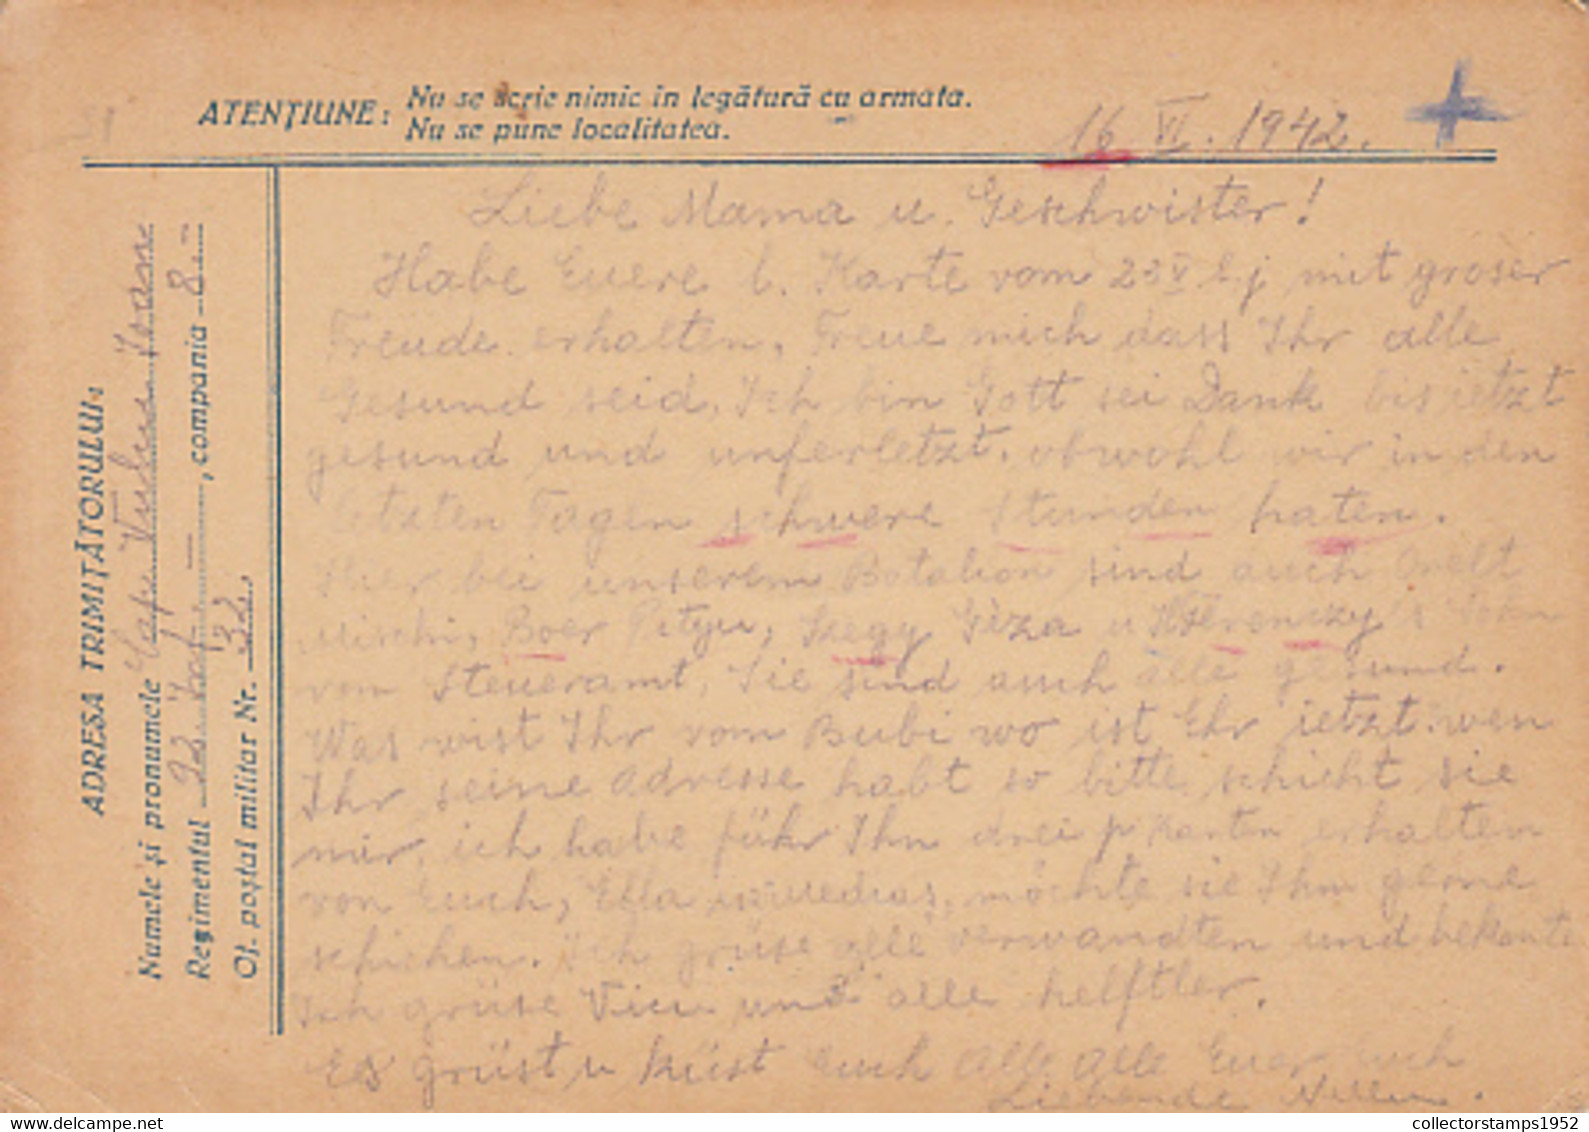 ATENȚIUNE: Nu se scrie nimic in legătură cu armata.
Nu se pune localitatea.
16 VI. 1942.
ADRESA TRIMIȚĂTORULUI:
Numele și pronumele Cap. Ioan
Regimentul 92 Inf, compania 8
Of. poștal militar Nr. 132.
Liebe Mama u. Geschwister!
Habe Euere l. Karte vom 23 V l.j mit groser
Freude erhalten, Freue mich dass Ihr alle
Gesund seid. Ich bin Gott sei Dank bis ietzt
gesund und unferletzt. obwohl wir in den
letzten Tagen schwere Stunden haten.
Hier bei unserem Batalion sind auch
Mischi, Boer Pityu, Szegy Gèza u Sohn
vom Steueramt, Sie sind auch alle gesund.
Was wist Ihr vom Bubi wo ist Ehr ietzt. wen
Ihr seine Adresse habt so bitte schickt sie
mir, ich habe führ Ihn drei p. Karten erhalten
von Euch, Ella möchte sie Ihm gerne
schicken. Ich grüse alle verwandten und bekante
Ich grüse Vicu und alle helftler.
Es grüst u küst Euch Alle Alle Euer Euch
Liebende
collectorstamps1952